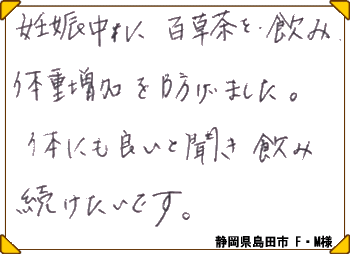 妊娠中に 百草茶を飲み
体重増加を防げました。
体にも良いと聞き 飲み
続けたいです。
静岡県島田市 F・M様